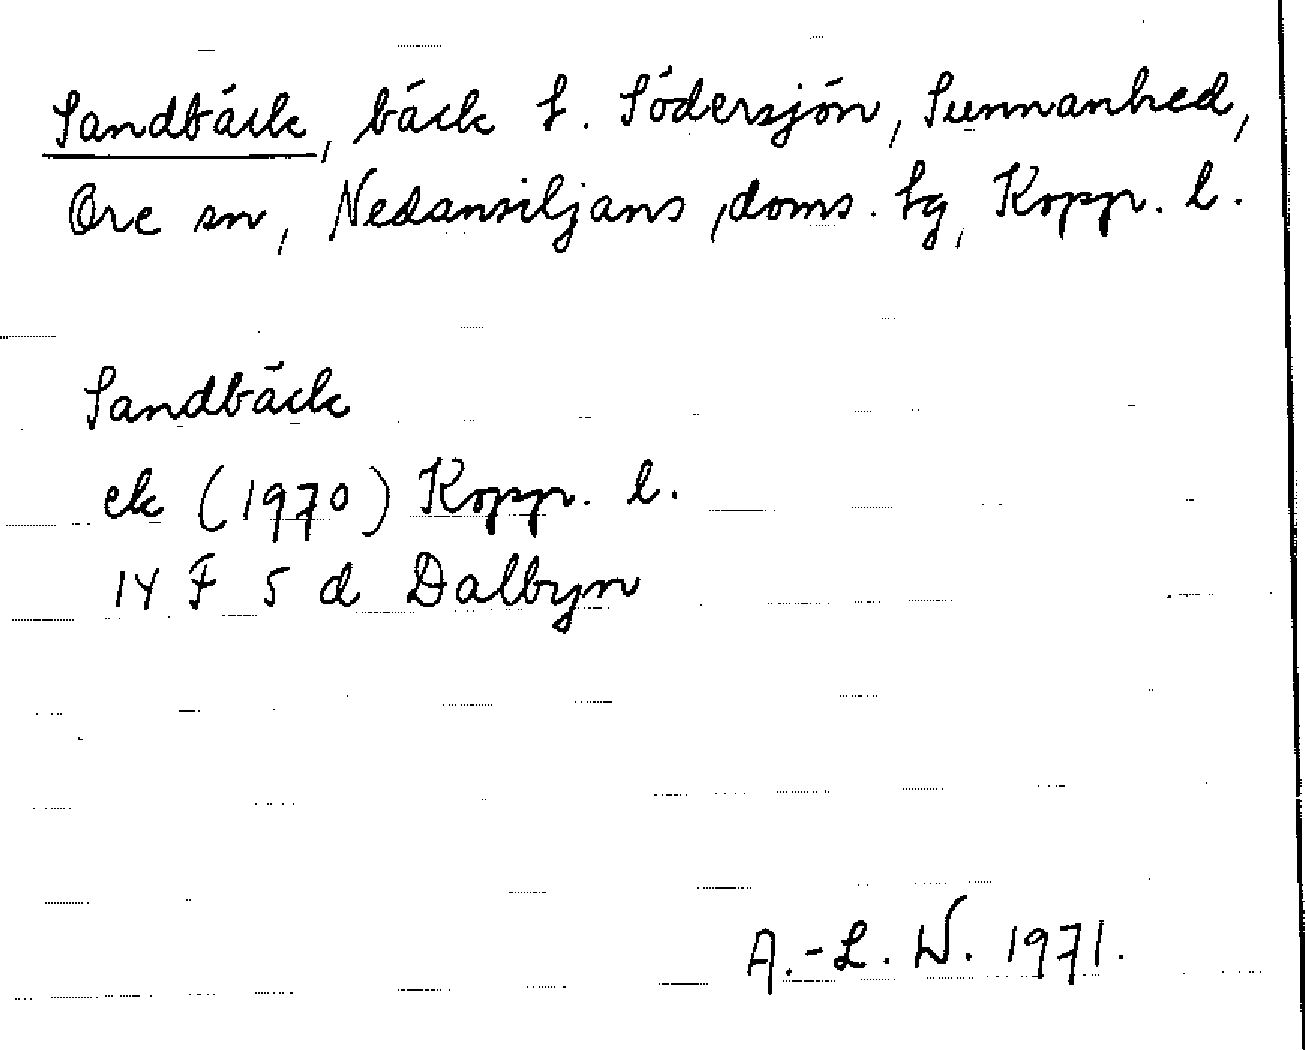 Sandbäck, bäck t. Södersjön, Sunnanhed,
Ore sn, Nedansiljans doms. tg, Kopp. l.
Sandbäck
ek (1970) Kopp. l.
14 F 5 d Dalbyn
A.-L. W. 1971.